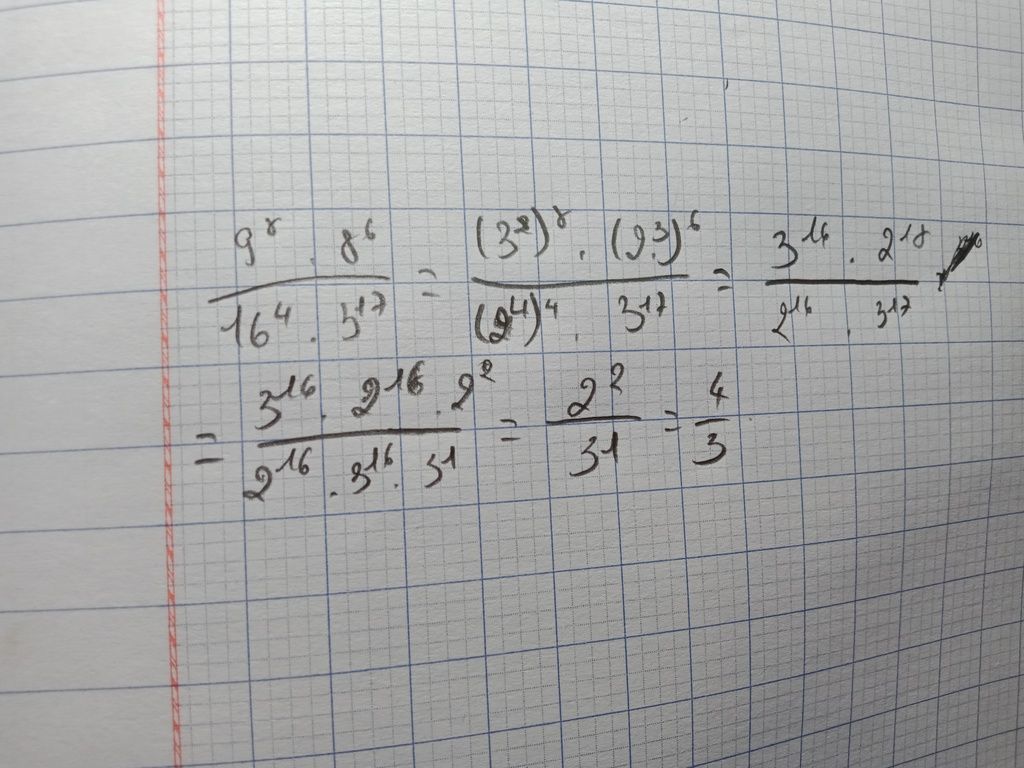 9^8 . 8^6 / 16^4 . 3^17 = (3^2)^8 . (2^3)^6 / (2^4)^4 . 3^17 = 3^16 . 2^18 / 2^16 . 3^17
= 3^16 . 2^16 . 2^2 / 2^16 . 3^16 . 3^1 = 2^2 / 3^1 = 4 / 3